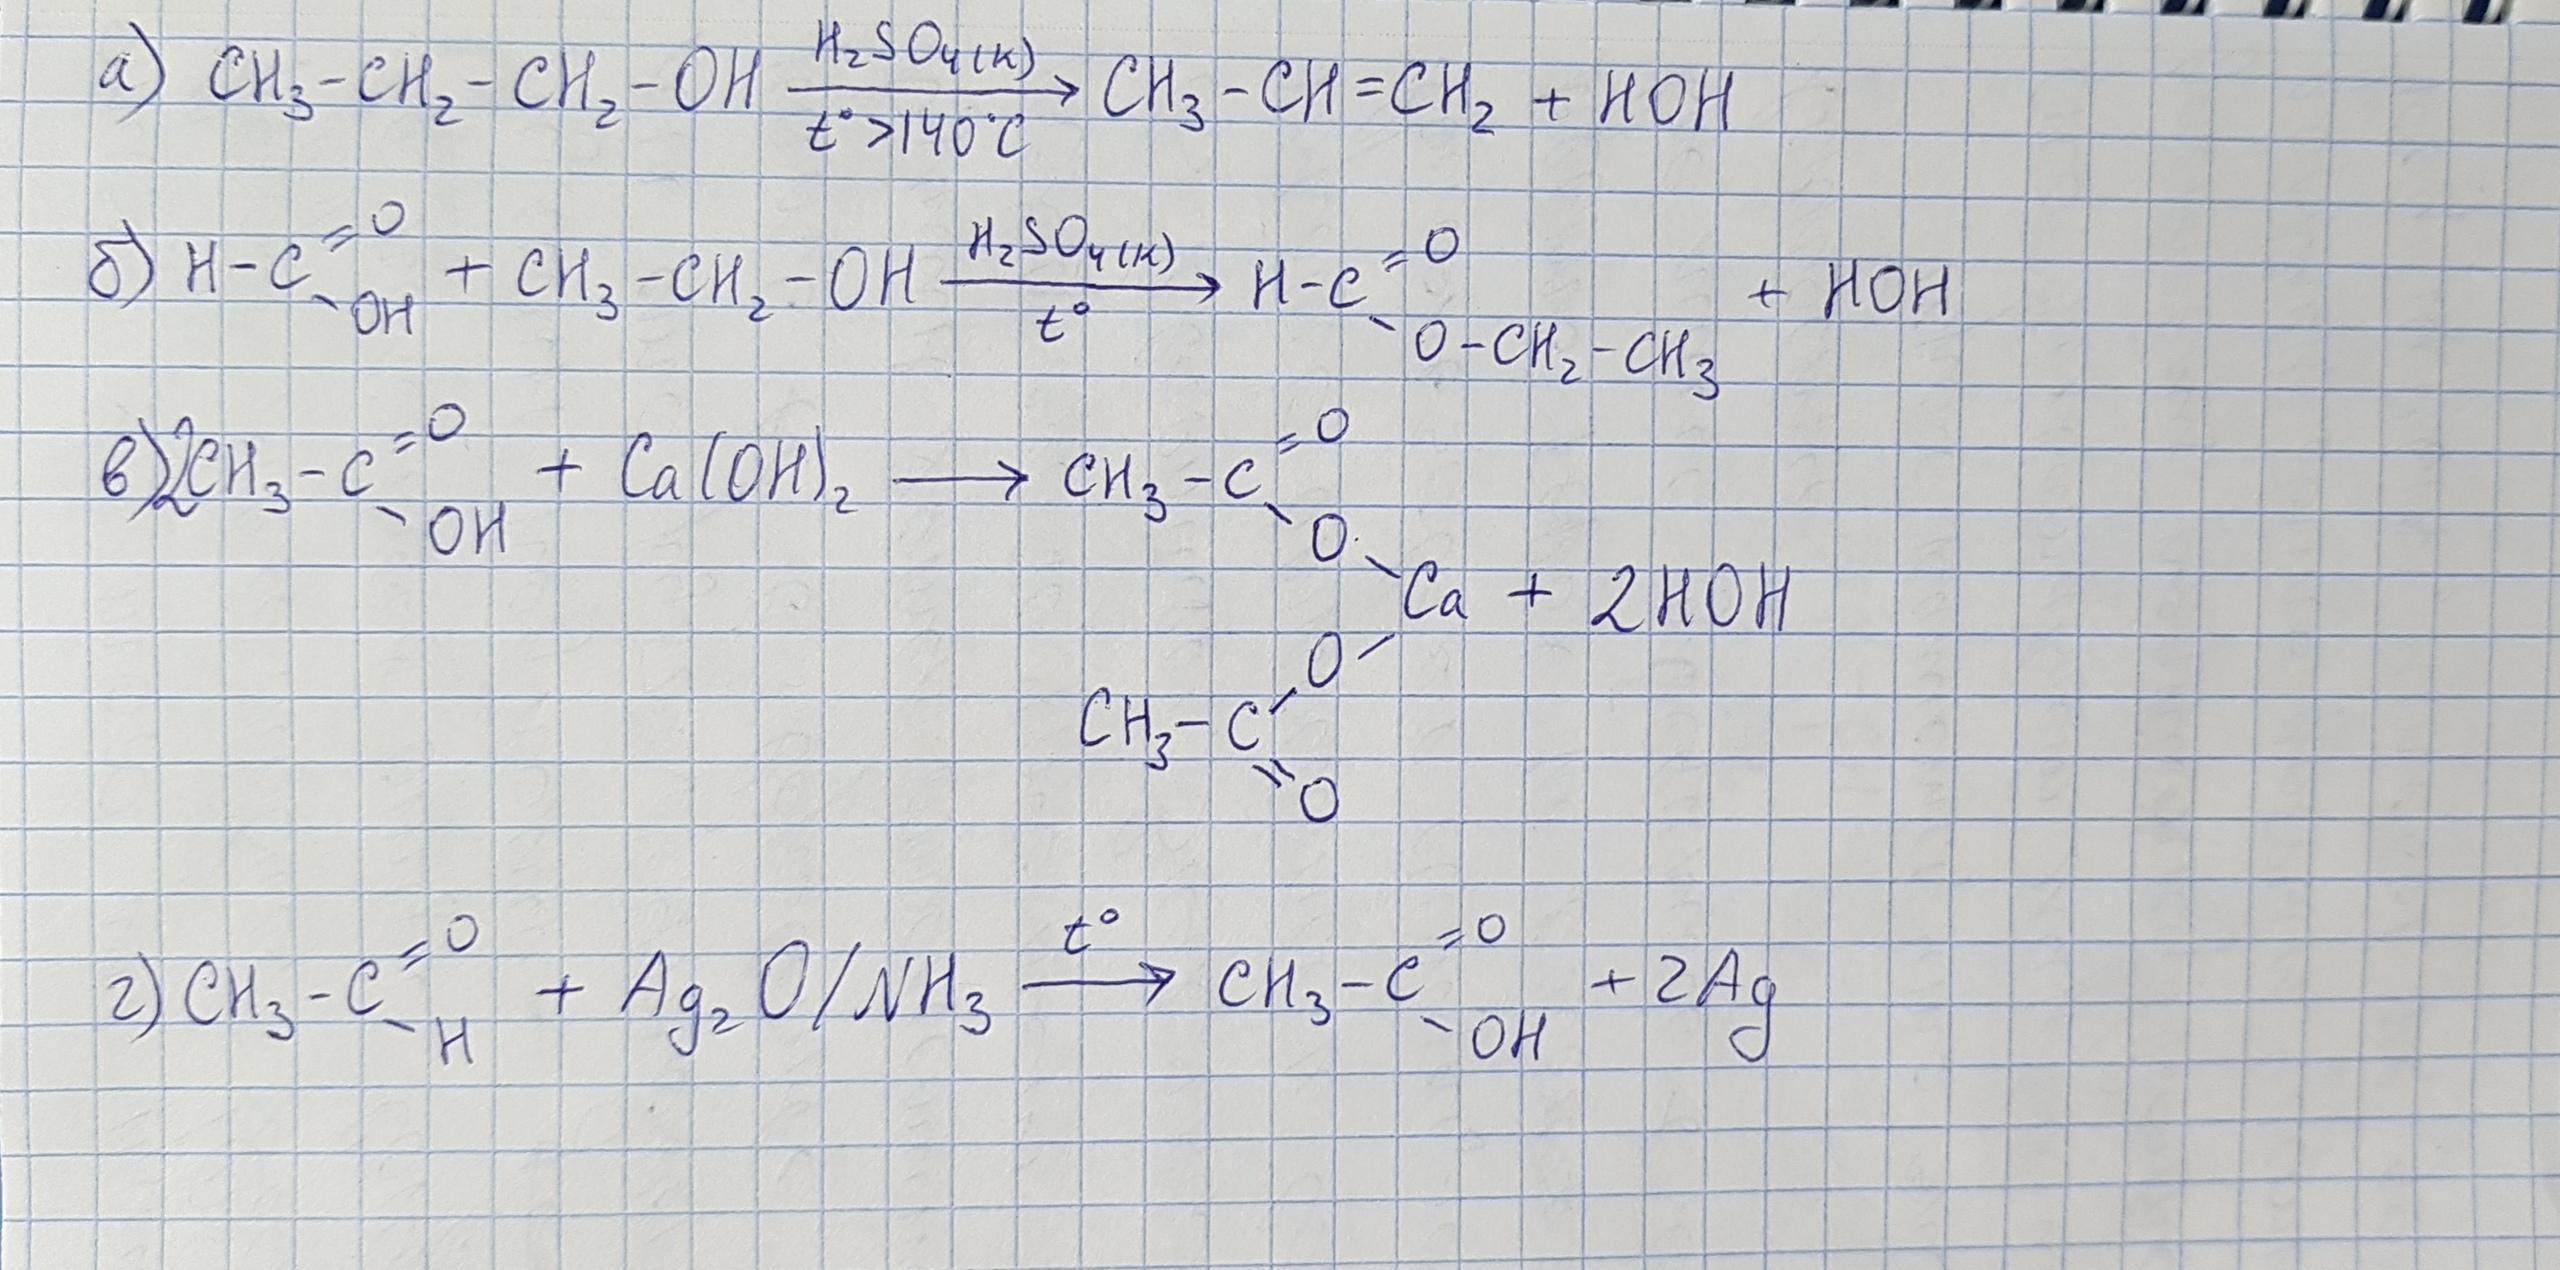 а) CH₃-CH₂-CH₂-OH H₂SO₄(к) t°>140°C → CH₃-CH=CH₂ + HOH
б) H-C=O-OH + CH₃-CH₂-OH H₂SO₄(к) t° → H-C=O-O-CH₂-CH₃ + HOH
в) 2CH₃-C=O-OH + Ca(OH)₂ → CH₃-C=O-O-Ca + 2HOH
O-
CH₃-C
=O
г) CH₃-C=O-H + Ag₂O/NH₃ t° → CH₃-C=O-OH + 2Ag